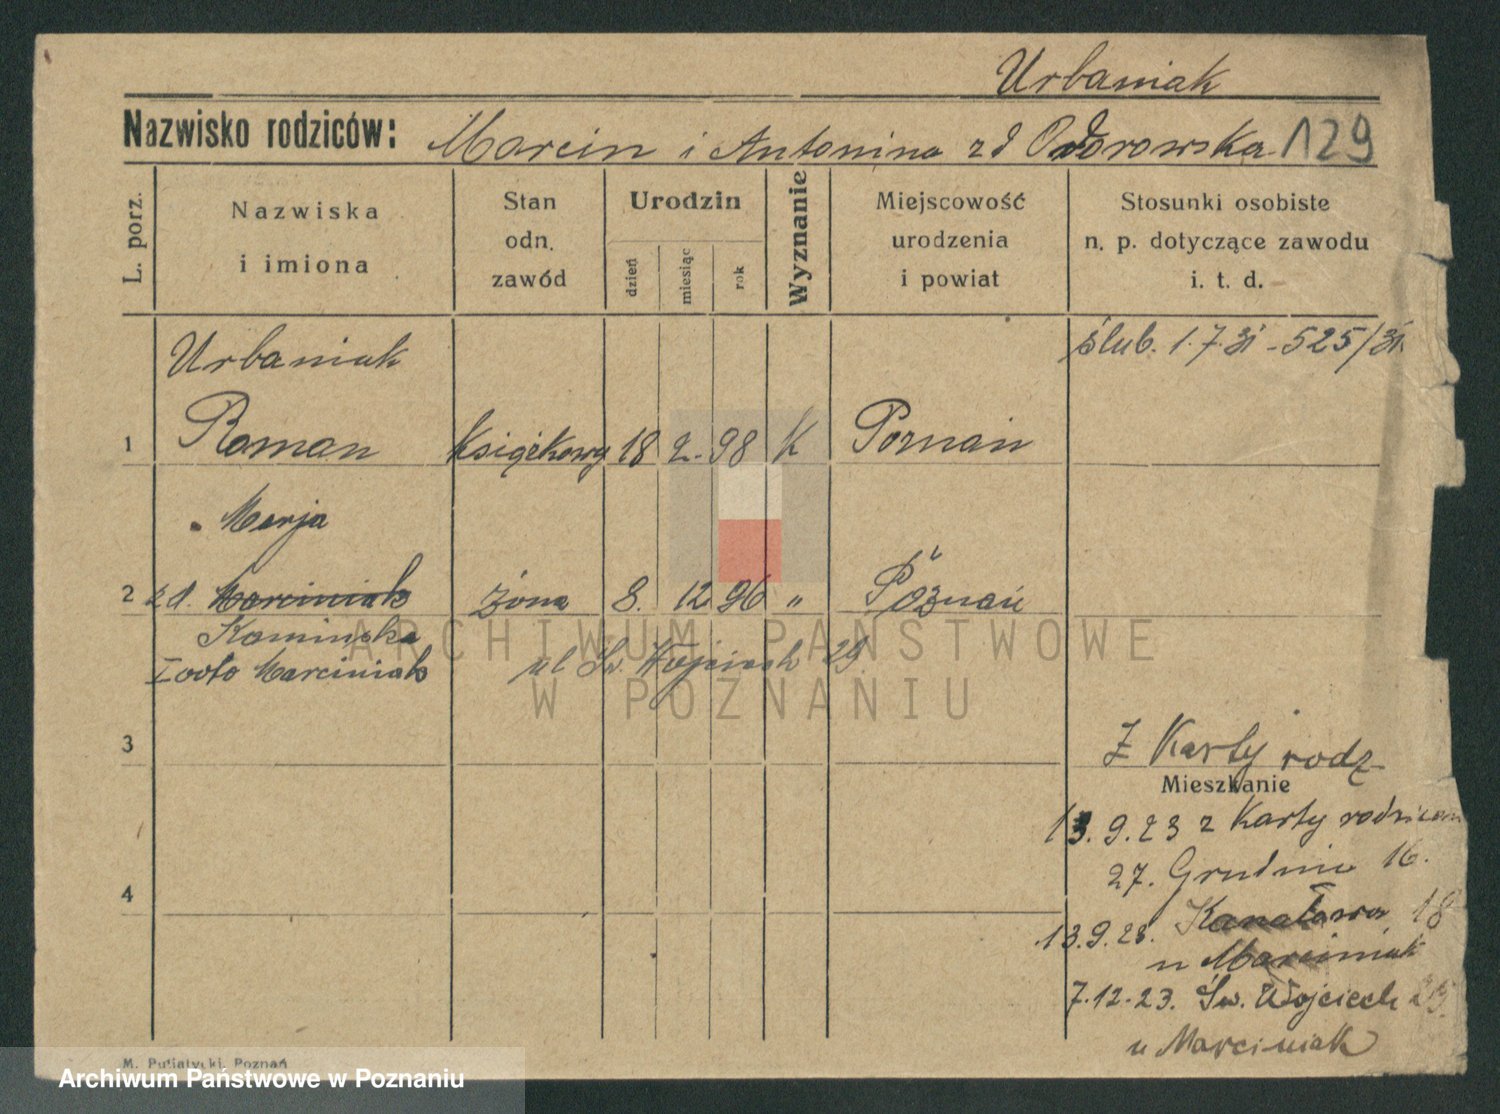 Urbaniak
Nazwisko rodziców: Marcin i Antonina zd Odorowska 129
L. porz.
Nazwiska
i imiona
Stan
odn.
zawód
Urodzin
dzień
miesiąc
rok
Wyznanie
Miejscowość
urodzenia
i powiat
Stosunki osobiste
n. p. dotyczące zawodu
i. t. d.
Urbaniak ślub. 1.7.31 - 525/31.
1 Roman Książkowy 18 2. 98 K Poznań
Marja
2 zd. Marciniak żona 8. 12 96 " Poznań
Kamińska
I voto Marciniak ul Św. Wojciech 29
ARCHIWUM PAŃSTWOWE
W POZNANIU
3 Z Karty rodz
Mieszkanie
13.9.23 z Karty rodzicow
27. Grudnia 16.
4
13.9.23. Kanałowa 18
u Marciniak
7.12.23. Św. Wojciech 29.
u Marciniak
M. Putiatycki, Poznań
Archiwum Państwowe w Poznaniu